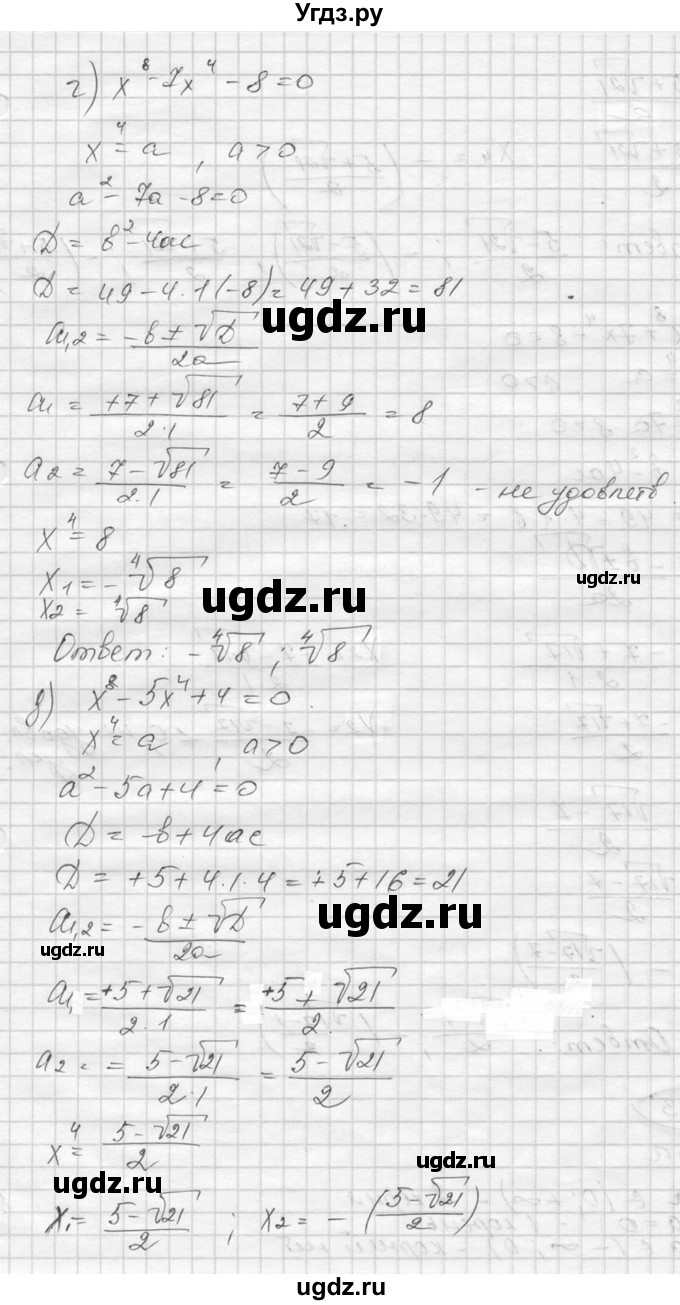 Угдз.ру
г) x⁸ - 7x⁴ - 8 = 0
x⁴ = a , a > 0
a² - 7a - 8 = 0
D = b² - 4ac
D = 49 - 4·1(-8) = 49 + 32 = 81
a₁,₂ = (-b ± √D)/2a
ugdz.ru
a₁ = (+7 + √81)/(2·1) = (7 + 9)/2 = 8
a₂ = (7 - √81)/(2·1) = (7 - 9)/2 = -1 - не удовлетв.
x⁴ = 8
ugdz.ru
x₁ = -⁴√8
ugdz.ru
x₂ = ⁴√8
Ответ: -⁴√8 ; ⁴√8
д) x⁸ - 5x⁴ + 4 = 0.
x⁴ = a , a > 0
a² - 5a + 4 = 0
D = -b + 4ac
D = +5 + 4·1·4 = +5 + 16 = 21
a₁,₂ = (-b ± √D)/2a
ugdz.ru
ugdz.ru
a₁ = (+5 + √21)/(2·1) = (+5 + √21)/2.
a₂ = = (5 - √21)/(2·1) = (5 - √21)/2
x⁴ = (5 - √21)/2
ugdz.ru
ugdz.ru
x₁ = (5 - √21)/2 ; x₂ = -((5 - √21)/2)
ugdz.ru
ugdz.ru